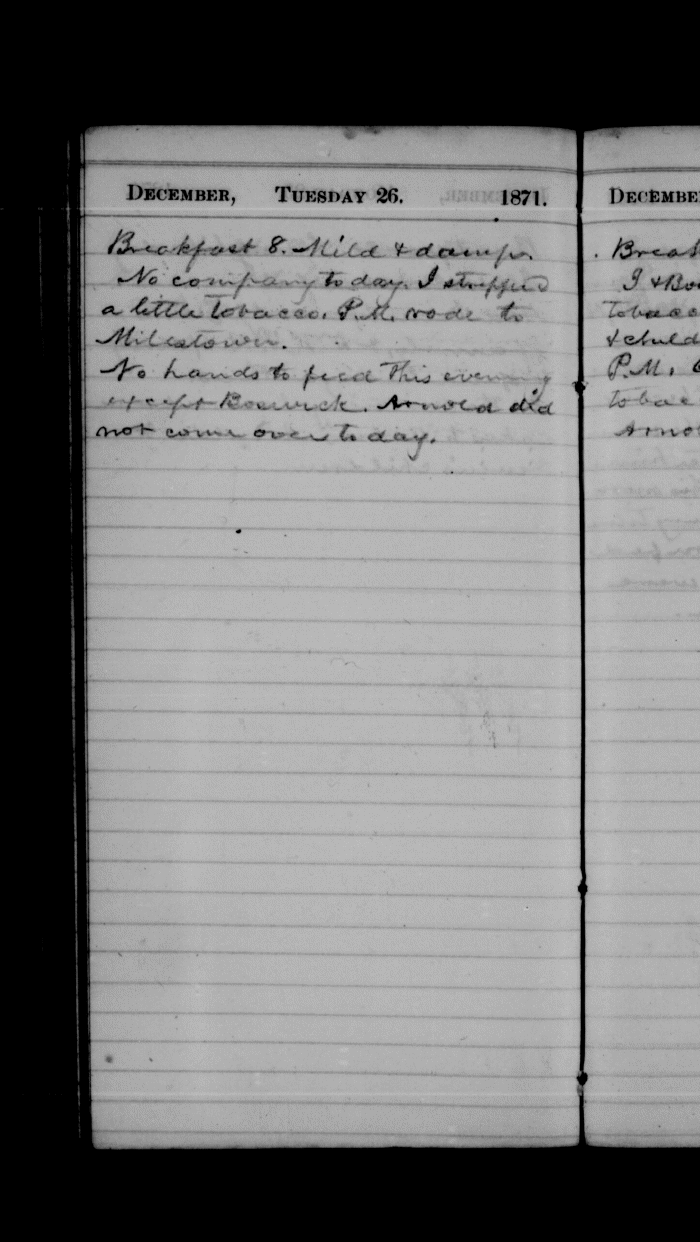 DECEMBER, TUESDAY 26. 1871.
Breakfast 8. Mild & damp.
No company to day. I stripped
a little tobacco. P.M. rode to
Milestown.
No hands to feed this evening
except Boswick. Arnold did
not come over to day.
DECEMBE
. Break
I & Bo
tobacc
& child
P.M.
tobac
Arno